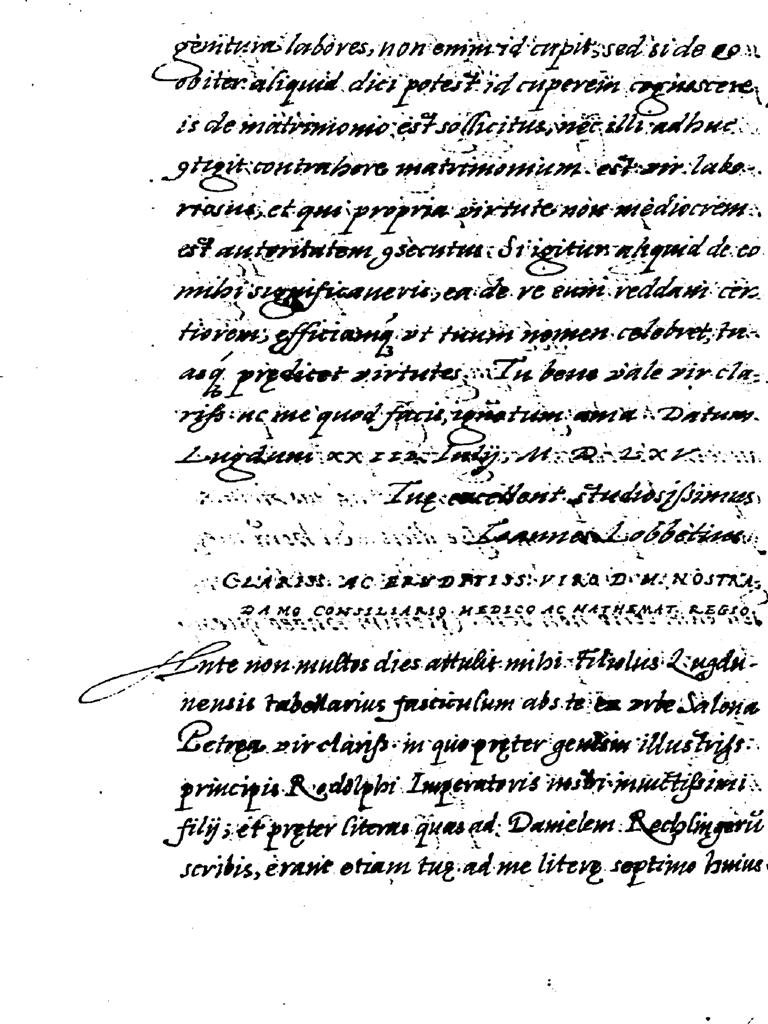 genitura labores, non enim id cupit, sed si de eo
obiter aliquid dici potest id cuperem cognoscere,
is de matrimonio est sollicitus, nec illi adhuc
ꝯtigit contrahere matrimonium. est vir labo-
riosus, et qui propria virtute non mediocrem
est autoritatem ꝯsecutus. Si igitur aliquid de eo
mihi significaueris, ea de re eum reddam cer-
tiorem, efficiamq́ꝫ vt tuum nomen celebret, tu-
asq́ꝫ prędicet virtutes. Tu bene vale vir cla-
riss. ac me quod facis, ignotum ama. Datum
Lugduni XXIII Iulij. M. D. LXV.
Tuę excellent. studiosissimus
Ioannes Lobbetius
CLARISS. AC ERVDITISS. VIRO D. M. NOSTRA-
DAMO CONSILIARIO MEDICO AC MATHEMAT. REGIO.
Ante non multos dies attulit mihi Filiolus Lugdu-
nensis tabellarius fasciculum abs te ex vrbe Salona
Petręa vir clariss. in quo pręter genesin illustriss.
principis Rodolphi Imperatoris nostri inuictissimi
filij, et pręter literas quas ad Danielem Rechlingerū
scribis, erant etiam tuę ad me literę septimo huius